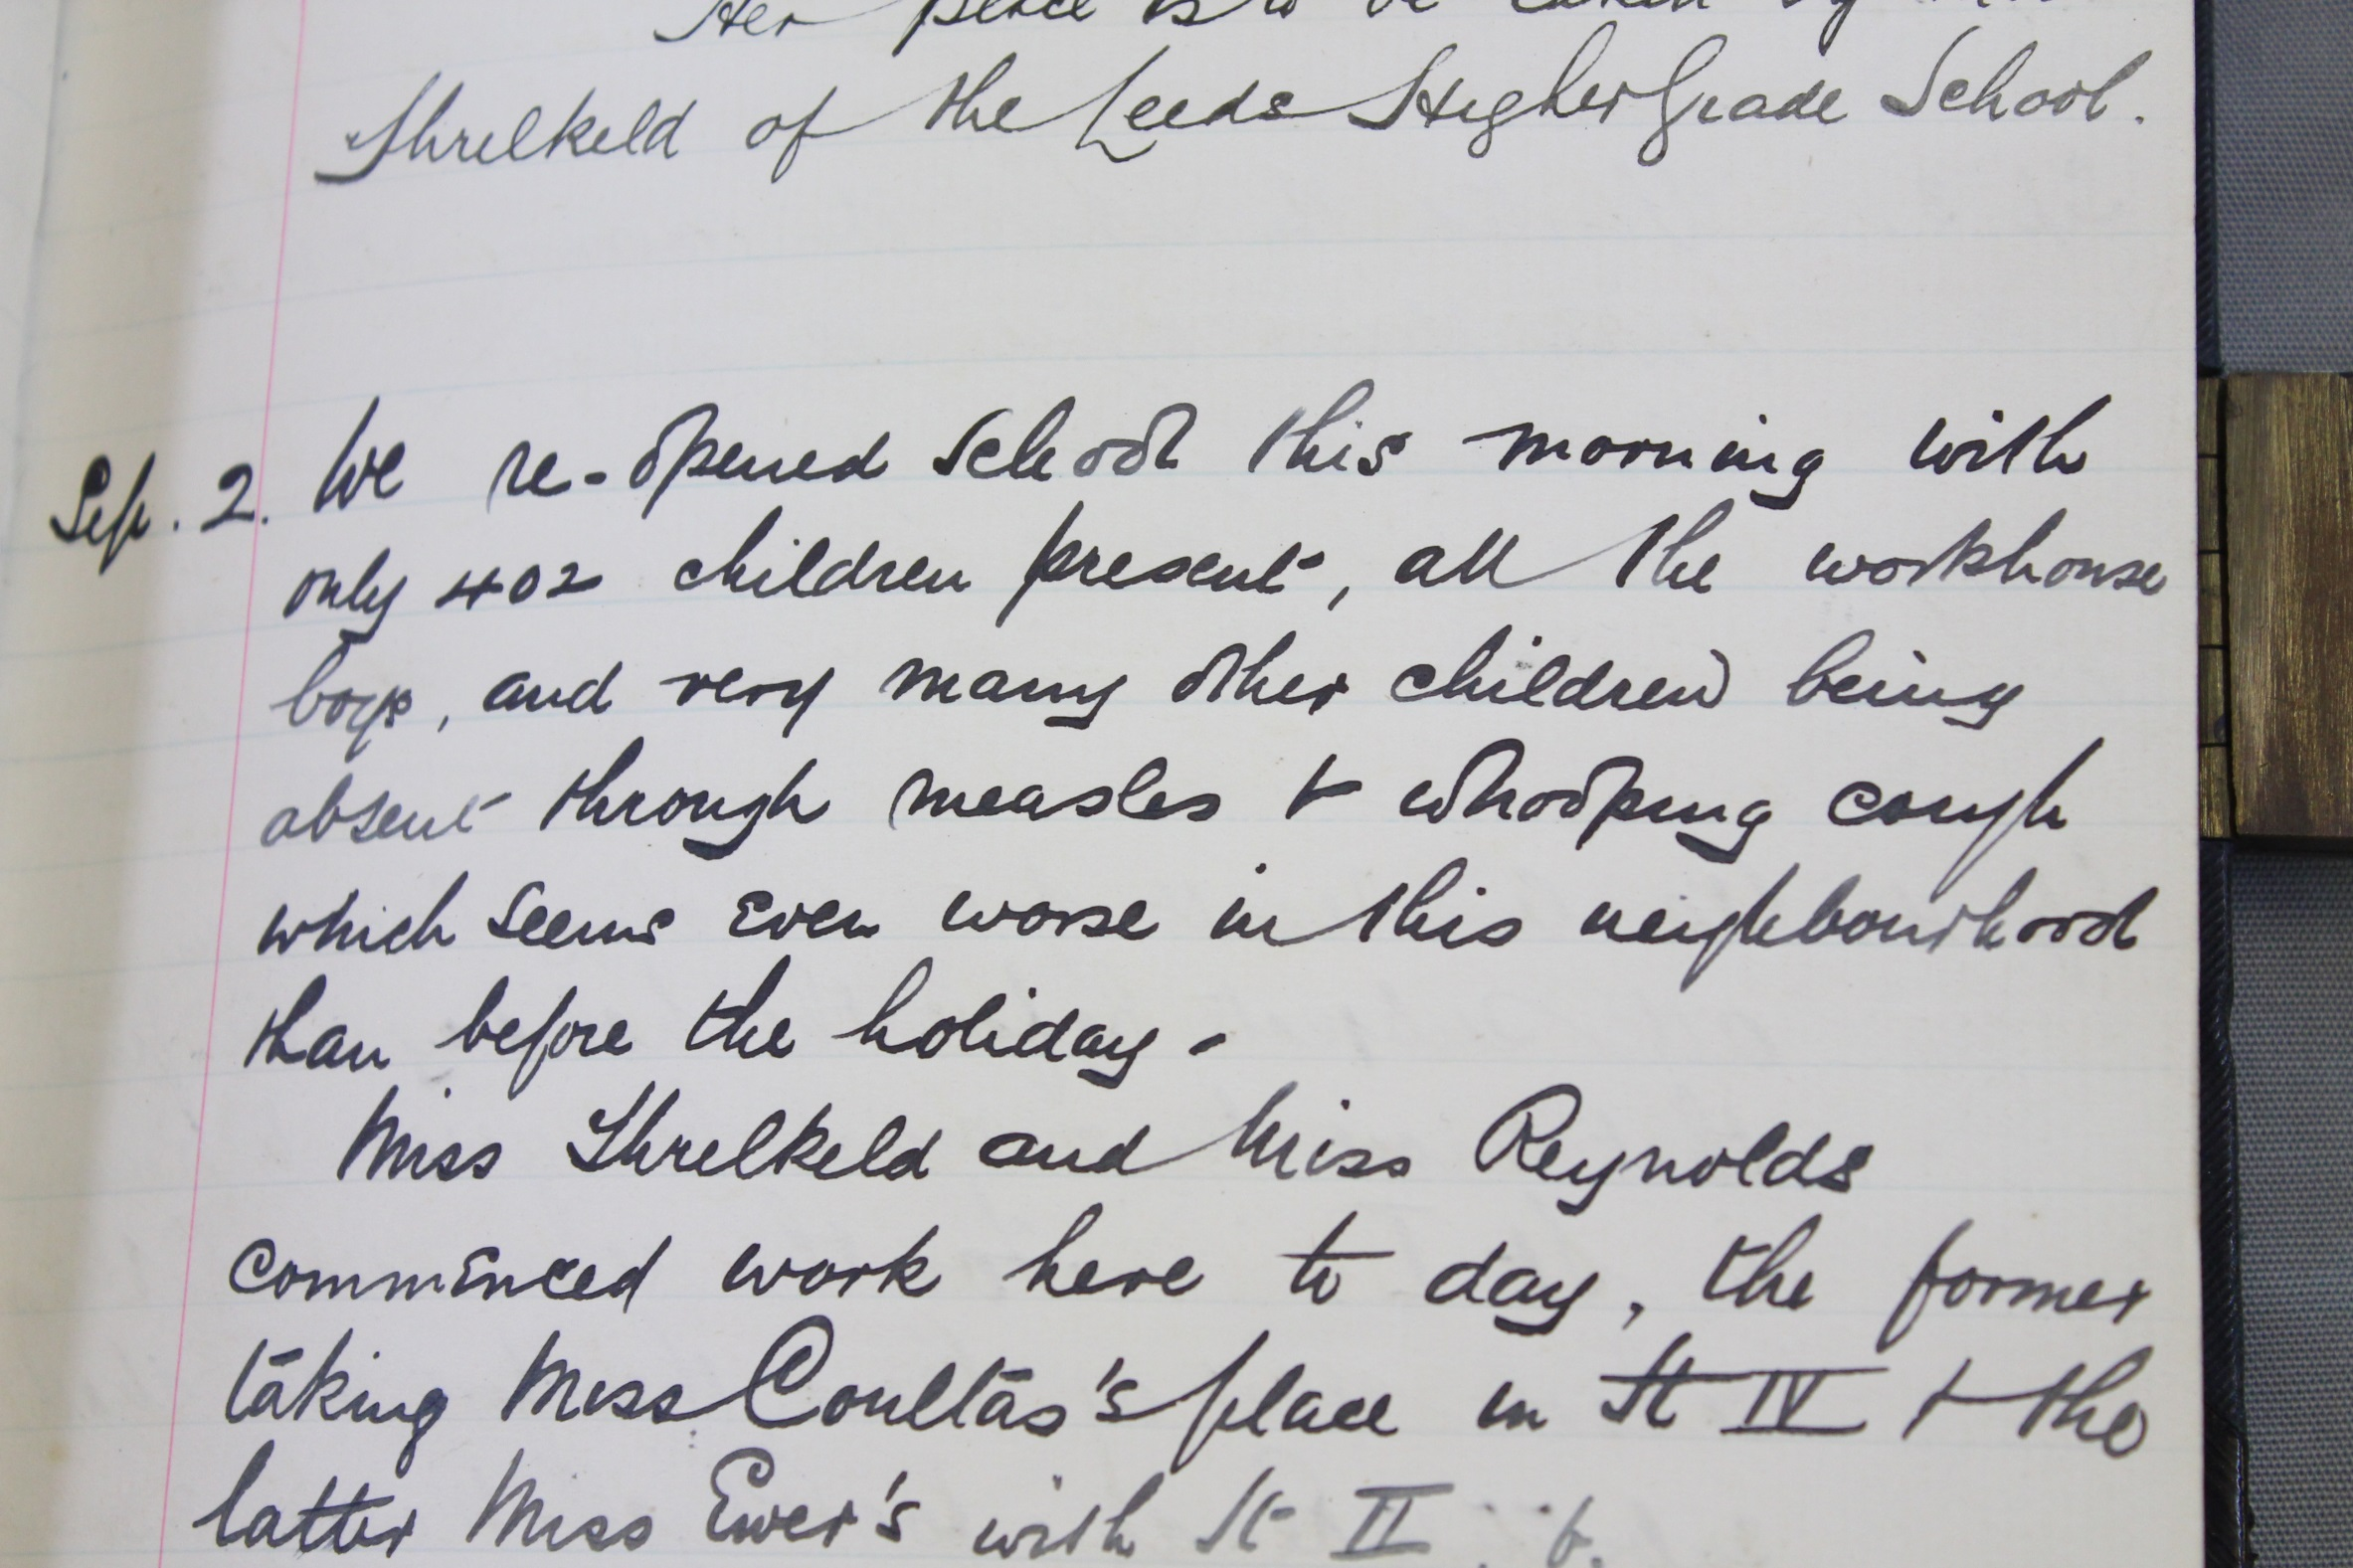 Her place is to be taken by
Threlkeld of the Leeds Higher Grade School.
Sep. 2. We re-opened School this morning with
only 402 children present, all the workhouse
boys, and very many other children being
absent through measles & whooping cough
which seems even worse in this neighbourhood
than before the holiday.
Miss Threlkeld and Miss Reynolds
commenced work here to day, the former
taking Miss Coultas's place in St IV & the
latter Miss Ewer's with St II.